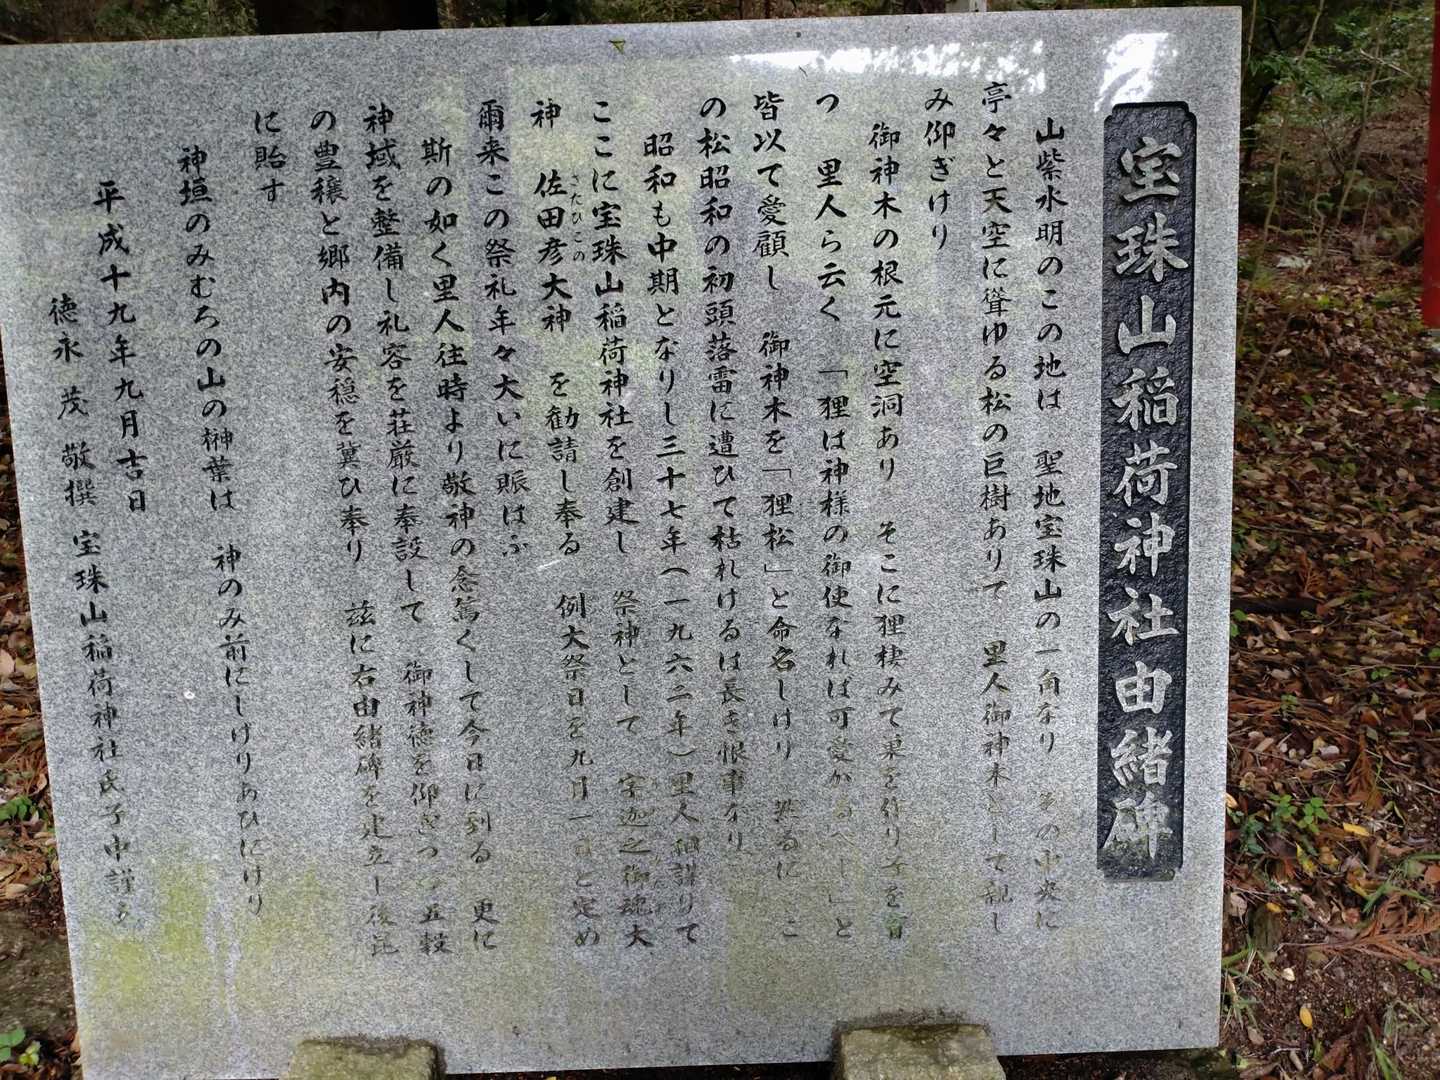 宝珠山稲荷神社由緒碑
山紫水明のこの地は 聖地宝珠山の一角なり その中央に
亭々と天空に聳ゆる松の巨樹ありて 里人御神木として親し
み仰ぎけり
御神木の根元に空洞あり そこに狸棲みて巣を作り子を育
つ 里人ら云く 「狸は神様の御使なれば可愛がるべし」と
皆以て愛顧し 御神木を「狸松」と命名しけり 然るに こ
の松昭和の初頭落雷に遭ひて枯れけるは長き恨事なり
昭和も中期となりし三十七年(一九六二年)里人相諮りて
ここに宝珠山稲荷神社を創建し 祭神として 宇迦之御魂大
神 佐田彦大神 を勧請し奉る 例大祭日を九月一日と定め
さたひこの
爾来この祭礼年々大いに賑はふ
斯の如く里人往時より敬神の念篤くして今日に到る 更に
神域を整備し礼容を荘厳に奉設して 御神徳を仰ぎつつ五穀
の豊穣と郷内の安穏を冀ひ奉り 茲に右由緒碑を建立し後昆
に貽す
神垣のみむろの山の榊葉は 神のみ前にしけりあひにけり
平成十九年九月吉日
徳永 茂 敬撰 宝珠山稲荷神社氏子中謹立